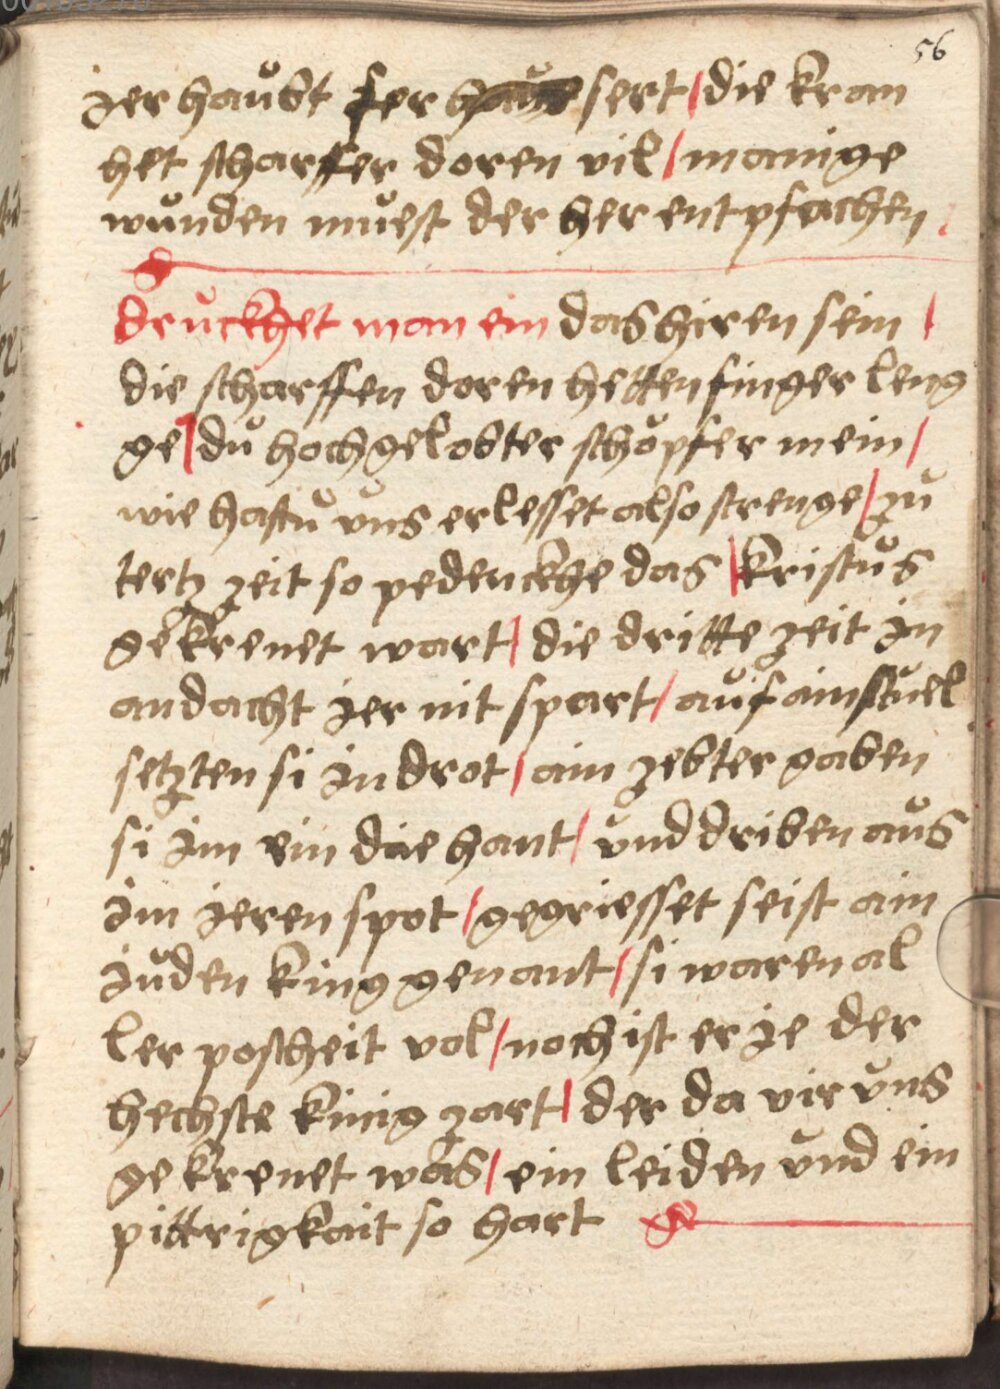 56
ier haubt ser sert / die kran
het scharffer doren vil / manige
wunden muest der her entpfachen /
druckhet man ein das hiren sein /
die scharffen doren hetten finger leng
ge / du hochgelobter schöpfer mein /
wie hastu uns erlesset also strenge / zu
tertz zeit so pedenckhe das / kristus
gekrenet wart / die dritte zeit in
andacht ier nit spart / auf ain stuel
setzten si in drot / ain zebter gaben
si im ein die hant / und driben aus
im ieren spot / gegriesset seist ain
iuden king genant / si waren al
ler poscheit vol / noch ist er ie der
hechste kinig zart / der da vir uns
gekrenet was / ein leiden und ein
pittrigkait so hart